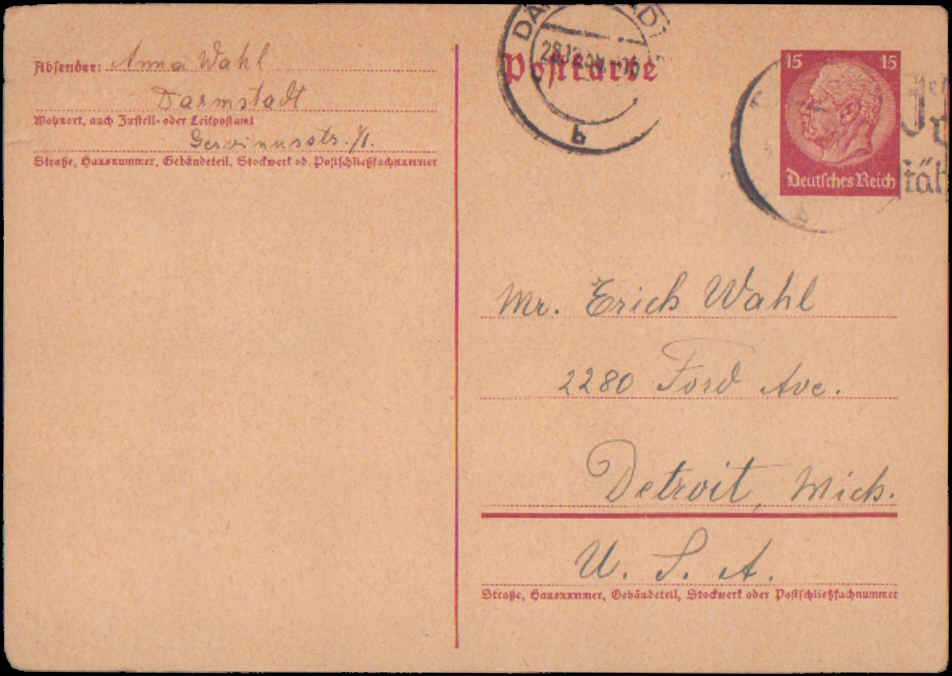 Absender: Anna Wahl
Darmstadt
Wohnort, auch Zustell- oder Leitpostamt
Gervinusstr.
Straße, Hausnummer, Gebäudeteil, Stockwerk od. Postschließfachnummer
Postkarte
b
15 15
Deutsches Reich
b
Mr. Erich Wahl
2280 Ford Ave.
Detroit, Mich.
U. S. A.
Straße, Hausnummer, Gebäudeteil, Stockwerk oder Postschließfachnummer